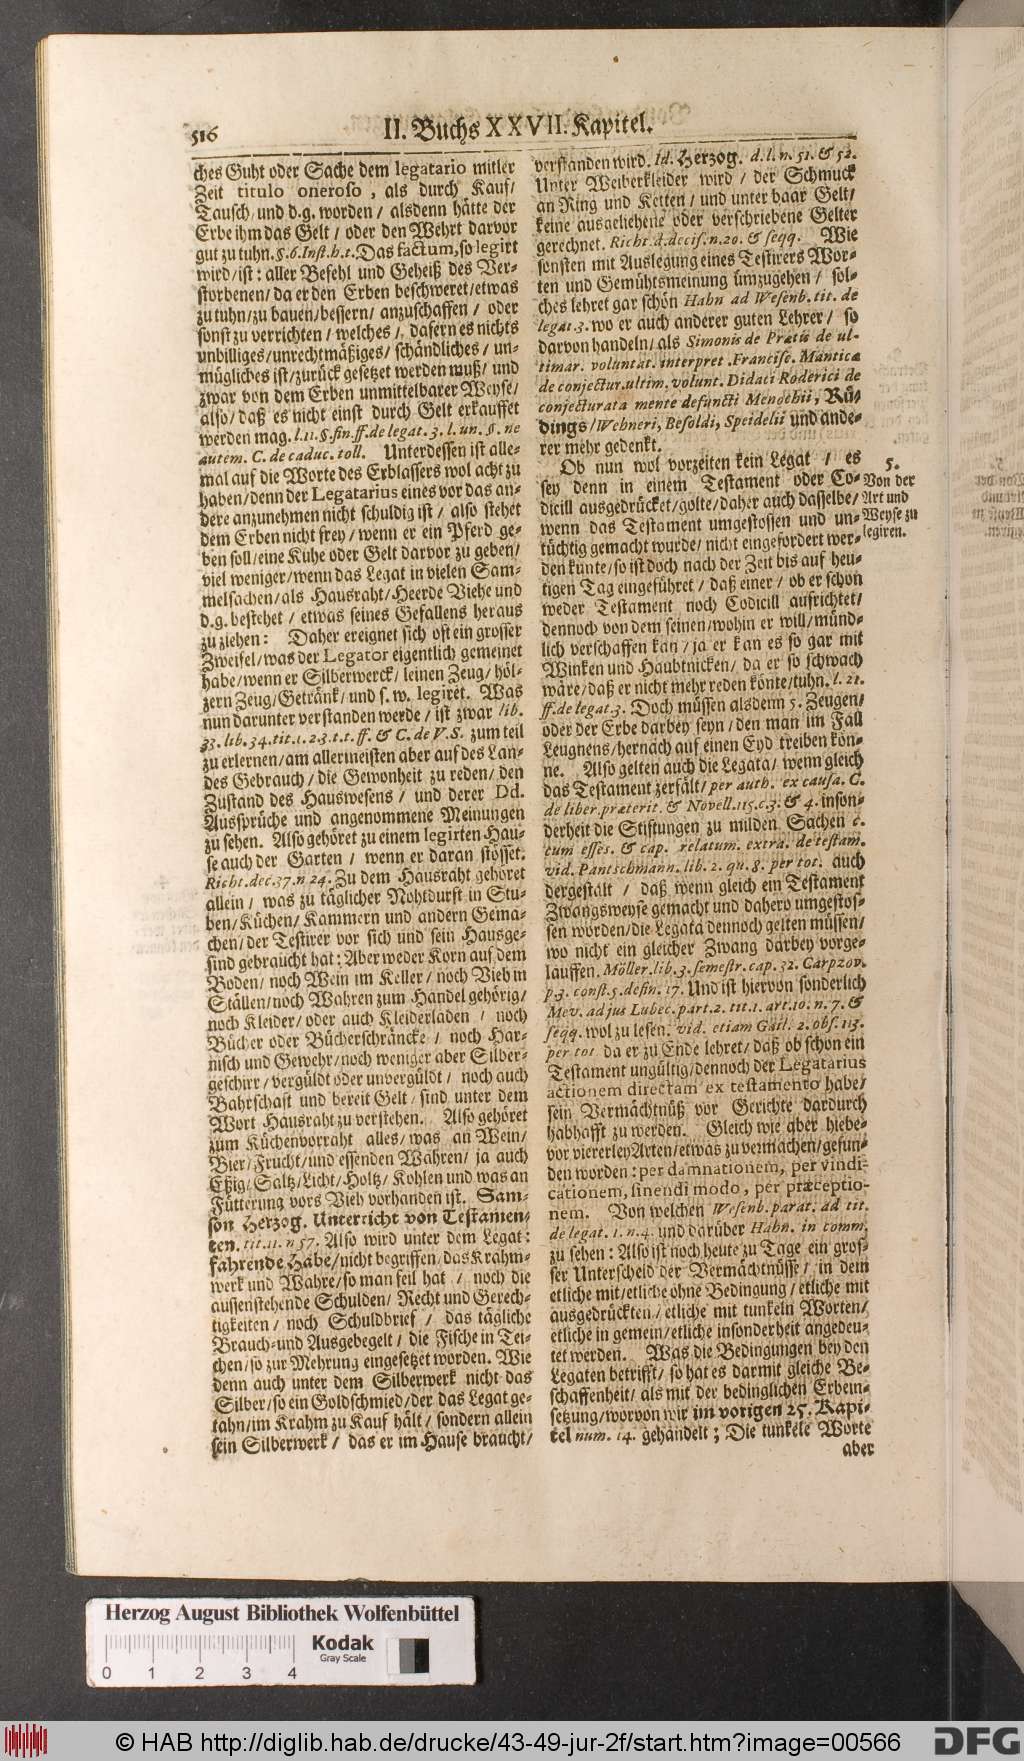 516
II. Buchs XXVII. Kapitel.
ches Guht oder Sache dem legatario mitler
Zeit titulo oneroso, als durch Kauf/
Tausch/ und d.g. worden/ alsdenn hätte der
Erbe ihm das Gelt/ oder den Wehrt darvor
gut zu tuhn. §. 6. Inst. h. t. Das factum, so legirt
wird/ ist: aller Befehl und Geheiß des Ver-
storbenen/ da er den Erben beschweret/ etwas
zu tuhn/ zu bauen/ bessern/ anzuschaffen/ oder
sonst zu verrichten/ welches/ dafern es nichts
unbilliges/ unrechtmäßiges/ schändliches/ un-
mügliches ist/ zurück gesetzet werden muß/ und
zwar von dem Erben unmittelbarer Weyse/
also/ daß es nicht einst durch Gelt erkauffet
werden mag. l. 11. §. fin. ff. de legat. 3. l. un. §. ne
autem. C. de caduc. toll. Unterdessen ist alle-
mal auf die Worte des Erblassers wol acht zu
haben/ denn der Legatarius eines vor das an-
dere anzunehmen nicht schuldig ist/ also stehet
dem Erben nicht frey/ wenn er ein Pferd ge-
ben soll/ eine Kuhe oder Gelt darvor zu geben/
viel weniger/ wenn das Legat in vielen Sam-
melsachen/ als Hausraht/ Heerde Viehe und
d.g. bestehet/ etwas seines Gefallens heraus
zu ziehen: Daher ereignet sich oft ein grosser
Zweifel/ was der Legator eigentlich gemeinet
habe/ wenn er Silberwerck/ leinen Zeug/ höl-
zern Zeug/ Getränk/ und s. w. legiret. Was
nun darunter verstanden werde/ ist zwar lib.
33. lib. 34. tit. 1. 2. 3. t. t. ff. & C. de V. S. zum teil
zu erlernen/ am allermeisten aber auf des Lan-
des Gebrauch/ die Gewonheit zu reden/ den
Zustand des Hauswesens/ und derer Dd.
Aussprüche und angenommene Meinungen
zu sehen. Also gehöret zu einem legirten Hau-
se auch der Garten/ wenn er daran stösset.
Richt. dec. 37. n 24. Zu dem Hausraht gehöret
allein/ was zu täglicher Nohtdurft in Stu-
ben/ Küchen/ Kammern und andern Gema-
chen/ der Testirer vor sich und sein Hausge-
sind gebraucht hat: Aber weder Korn auf dem
Boden/ noch Wein im Keller/ noch Vieh in
Ställen/ noch Wahren zum Handel gehörig/
noch Kleider/ oder auch Kleiderladen/ noch
Bücher oder Bücherschräncke/ noch Har-
nisch und Gewehr/ noch weniger aber Silber-
geschirr/ vergüldt oder unvergüldt/ noch auch
Bahrschaft und bereit Gelt/ sind unter dem
Wort Hausraht zu verstehen. Also gehöret
zum Küchenvorraht alles/ was an Wein/
Bier/ Frucht/ und essenden Wahren/ ja auch
Eßig/ Saltz/ Licht/ Holtz/ Kohlen und was an
Fütterung vors Vieh vorhanden ist. Sam-
son Herzog. Unterricht von Testamen-
ten. tit. 11. n 57. Also wird unter dem Legat:
fahrende Habe/ nicht begriffen/ das Krahm-
werk und Wahre/ so man feil hat/ noch die
aussenstehende Schulden/ Recht und Gerech-
tigkeiten/ noch Schuldbrief/ das tägliche
Brauch- und Ausgebegelt/ die Fische in Tei-
chen/ so zur Mehrung eingesetzet worden. Wie
denn auch unter dem Silberwerk nicht das
Silber/ so ein Goldschmied/ der das Legat ge-
tahn/ im Krahm zu Kauf hält/ sondern allein
sein Silberwerk/ das er im Hause braucht/
verstanden wird. Id. Herzog. d. l. n. 51. & 52.
Unter Weiberkleider wird/ der Schmuck
an Ring und Ketten/ und unter baar Gelt/
keine ausgeliehene oder verschriebene Gelter
gerechnet. Richt. d. decis. n. 20. & seqq. Wie
sonsten mit Auslegung eines Testirers Wor-
ten und Gemühtsmeinung ümzugehen/ sol-
ches lehret gar schön Hahn ad Wesenb. tit. de
legat. 3. wo er auch anderer guten Lehrer/ so
darvon handeln/ als Simonis de Prætis de ul-
timar. voluntat. interpret. Francisc. Mantica
de conjectur. ultim. volunt. Didaci Roderici de
conjecturata mente defuncti Menochii, Rü-
dings/ Wehneri, Besoldi, Speidelii und ande-
rer mehr gedenkt.
Ob nun wol vorzeiten kein Legat/ es
sey denn in einem Testament oder Co-
dicill ausgedrücket/ golte/ daher auch dasselbe/
wenn das Testament umgestossen und un-
tüchtig gemacht wurde/ nicht eingefordert wer-
den kunte/ so ist doch nach der Zeit bis auf heu-
tigen Tag eingeführet/ daß einer/ ob er schon
weder Testament noch Codicill aufrichtet/
dennoch von dem seinen/ wohin er will/ münd-
lich verschaffen kan/ ja er kan es so gar mit
Winken und Haubtnicken/ da er so schwach
wäre/ daß er nicht mehr reden könte/ tuhn. l. 21.
ff. de legat. 3. Doch müssen alsdenn 5. Zeugen/
oder der Erbe darbey seyn/ den man im Fall
Leugnens/ hernach auf einen Eyd treiben kön-
ne. Also gelten auch die Legata/ wenn gleich
das Testament zerfält/ per auth. ex causa. C.
de liber. præterit. & Novell. 115. c. 3. & 4. inson-
derheit die Stiftungen zu milden Sachen c.
cum esses. & cap. relatum. extra. de testam.
vid. Pantschmann. lib. 2. qu. 8. per tot. auch
dergestalt/ daß wenn gleich ein Testament
Zwangsweyse gemacht und dahero umgestos-
sen worden/ die Legata dennoch gelten müssen/
wo nicht ein gleicher Zwang darbey vorge-
lauffen. Möller. lib. 3. semestr. cap. 32. Carpzov.
p. 3. const. 5. defin. 17. Und ist hiervon sonderlich
Mev. ad jus Lubec. part. 2. tit. 1. art. 10. n. 7. &
seqq. wol zu lesen. vid. etiam Gail. 2. obs. 113.
per tot da er zu Ende lehret/ daß ob schon ein
Testament ungültig/ dennoch der Legatarius
actionem directam ex testamento habe/
sein Vermächtnüß vor Gerichte dardurch
habhafft zu werden. Gleich wie aber hiebe-
vor viererley Arten/ etwas zu vermachen/ gefun-
den worden: per damnationem, per vindi-
cationem, sinendi modo, per præceptio-
nem. Von welchen Wesenb. parat. ad tit.
de legat. 1. n. 4. und darüber Hahn. in comm.
zu sehen: Also ist noch heute zu Tage ein gros-
ser Unterscheid der Vermächtnüsse/ in dem
etliche mit/ etliche ohne Bedingung/ etliche mit
ausgedrückten/ etliche mit tunkeln Worten/
etliche in gemein/ etliche insonderheit angedeu-
tet werden. Was die Bedingungen bey den
Legaten betrifft/ so hat es darmit gleiche Be-
schaffenheit/ als mit der bedinglichen Erbein-
setzung/ worvon wir im vorigen 25. Kapi-
tel num. 14. gehandelt; Die tunkele Worte
aber
5.
Von der
Art und
Weyse zu
legiren.
Herzog August Bibliothek Wolfenbüttel
Kodak
Gray Scale
0 1 2 3 4
© HAB http://diglib.hab.de/drucke/43-49-jur-2f/start.htm?image=00566
DFG